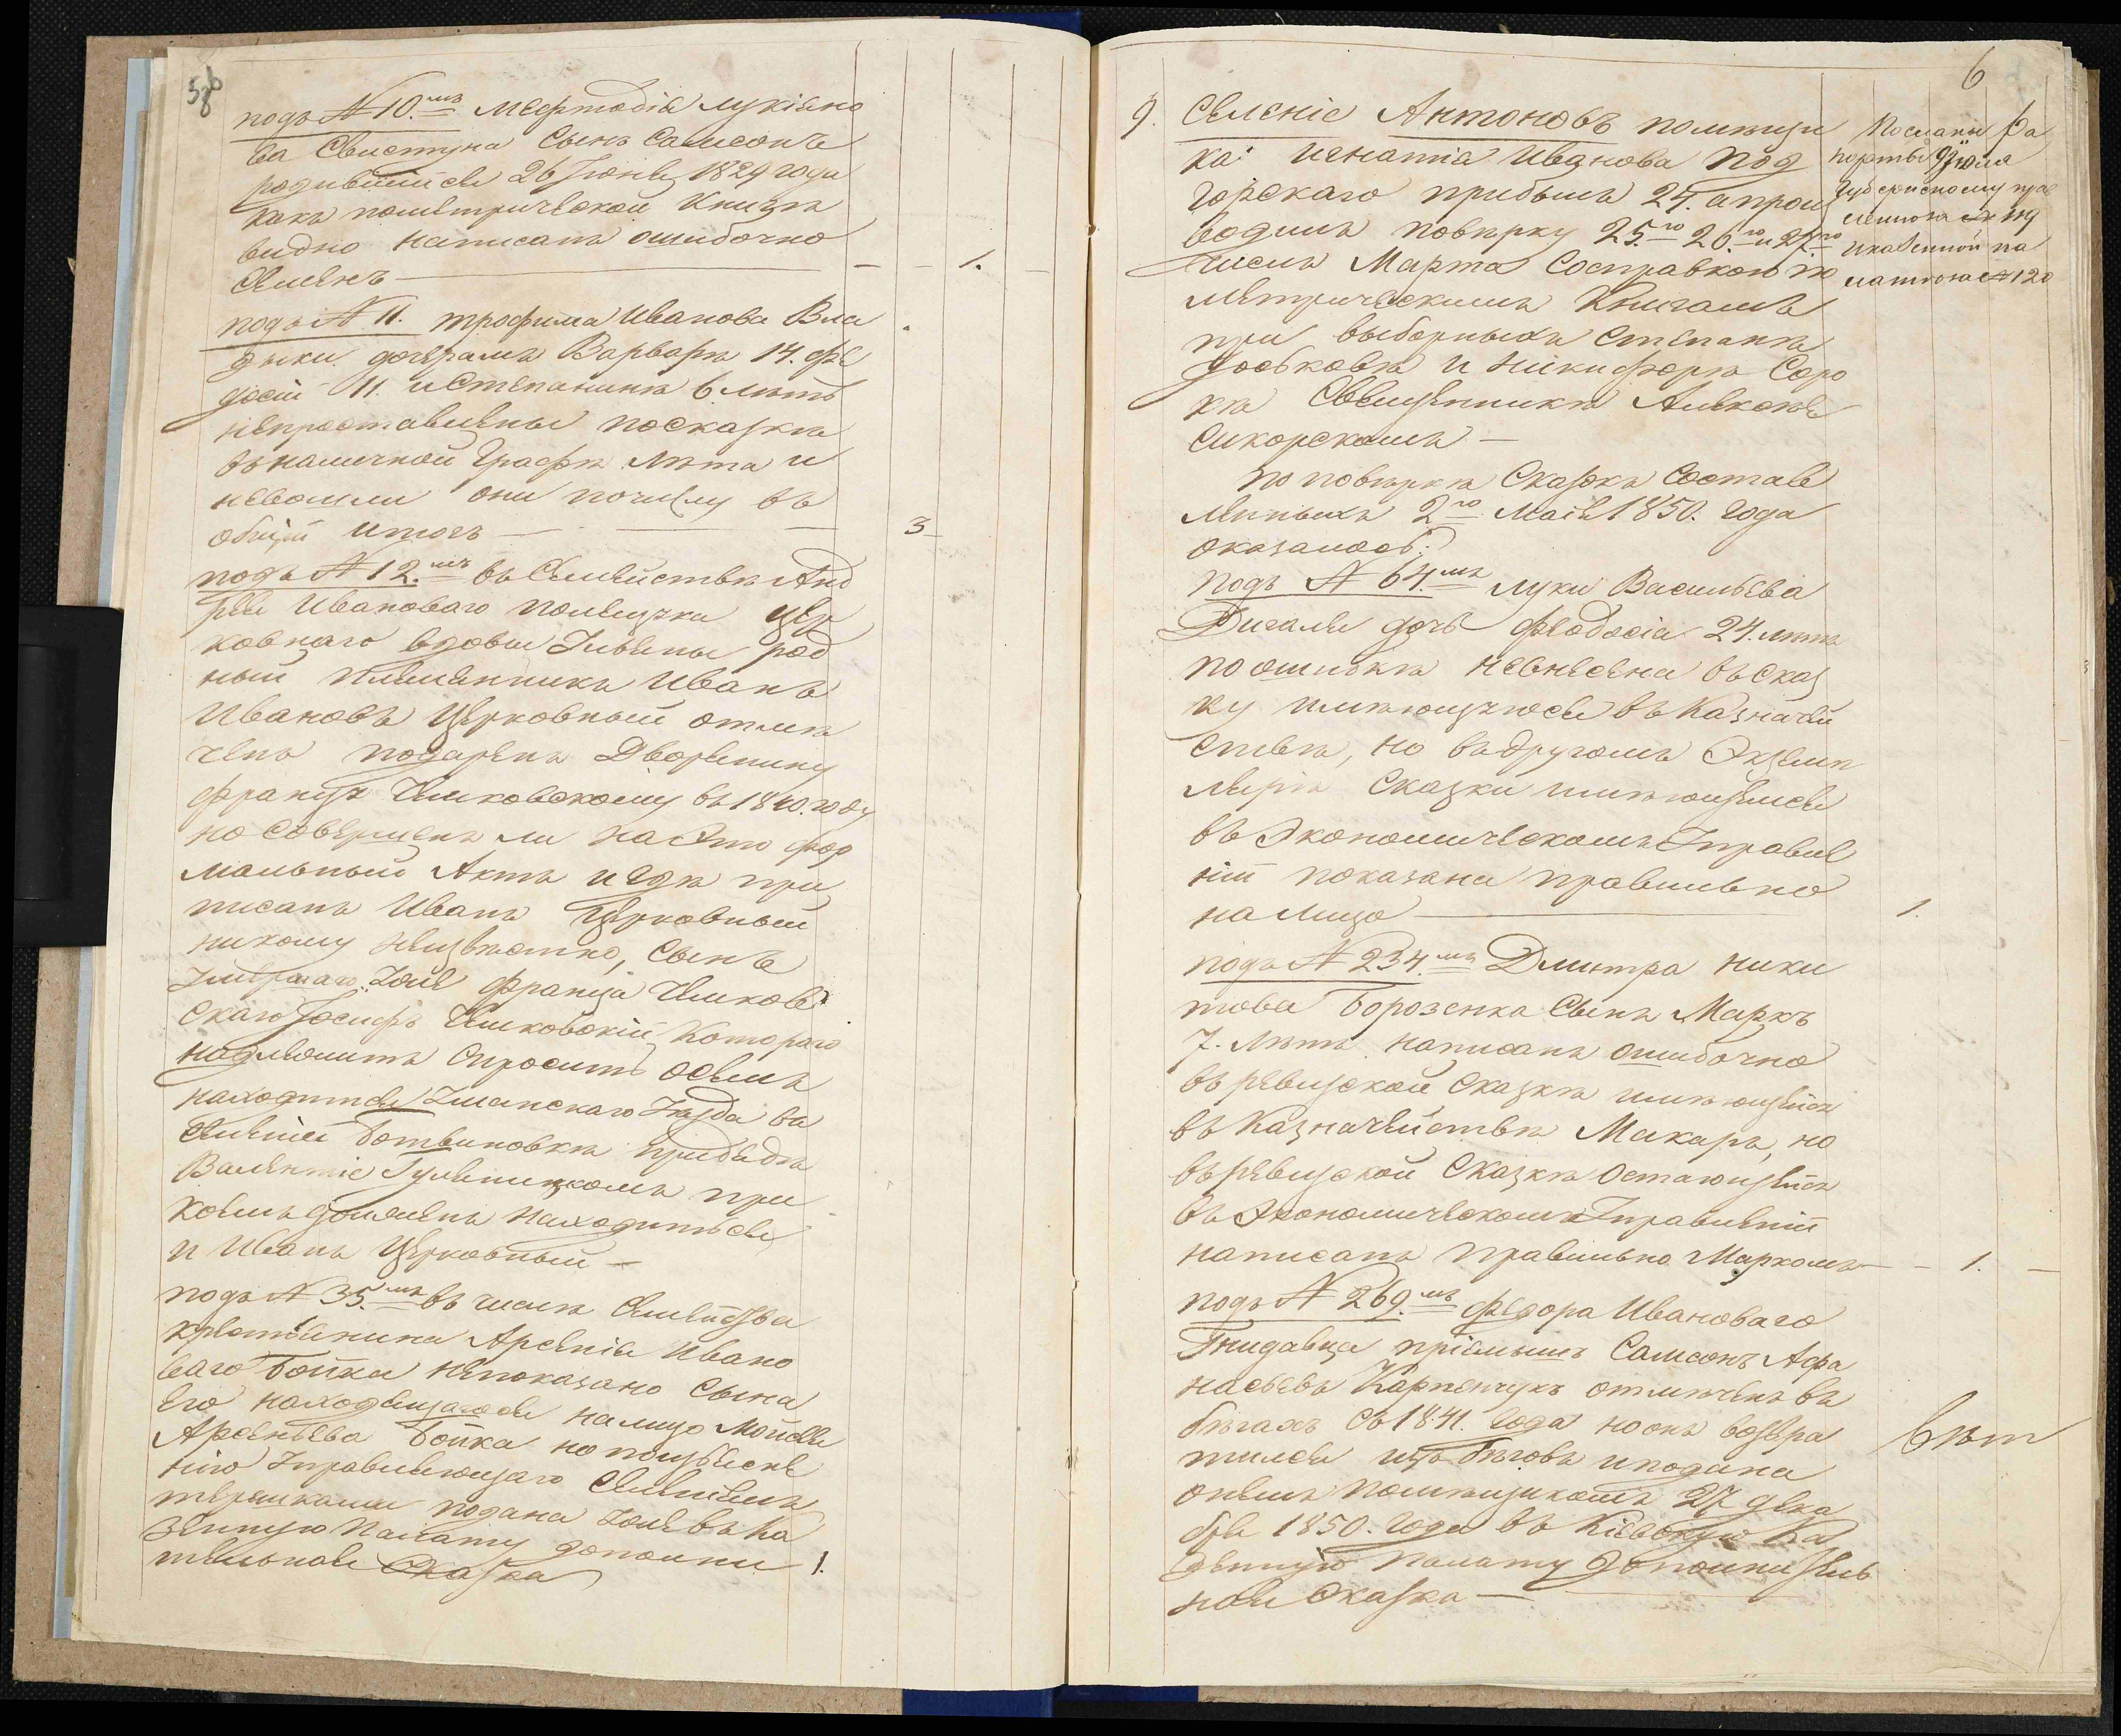 подъ № 10.мъ Мефтодія Лукіяно
ва Свистуна Сынъ Самсонъ
родившійся 26 Іюня 1829 года
какъ пометрической Книгѣ
видно написанъ ошибочно
Семенъ — 1.
подъ № 11. трофима Иванова Вла
дыки дочерямъ Варварѣ 14. фе
досіи 11. и Степанидѣ 6 лѣтъ
непроставлены посказкѣ
въ наличной Графѣ лѣта и
невошли они почему въ
общій итогъ — 3
подъ № 12.мъ въ Семействѣ Анд
рея Иванова помещика Цер
ковнаго вдовы Ульяны род
ный племянникъ Иванъ
Ивановъ Церковный отмѣ
ченъ подаренъ Дворянину
францу Чиковскому въ 1840. году
но совершенъ ли на это фор
мальный Актъ и гдѣ при
писанъ Иванъ Церковный
никому неизвѣстно, Сынъ
умершаго уже франца Чиков
скаго Іосифъ Чиковскій котораго
надлежитъ спросить осемъ
находится Уманскаго Уезда въ
селеніи Ботвиновкѣ придядѣ
Валентіе Гуленицкомъ при
коемъ долженъ находиться
и Иванъ Церковный —
подъ № 35.мъ въ числѣ Семейства
крестьянина Арсенія Ивано
ваго Бойка непоказано Сына
Его находящагося налицо Мойсея
Арсентьева Бойка но поизъясне
нію Управляющаго Селеніемъ
терешками подана уже въ Ка
зенную Палату дополни
тельная Сказка 1.
6
9. Селеніе Антоновъ помѣщи
ка Игнатія Иванова Под
горскаго прибылъ 24. а произ
водилъ повѣрку 25го 26.го и 27го
числа Марта Соправкою по
Метрическимъ Книгамъ
при выборныхъ Степанѣ
Доськовѣ и Никифорѣ Соро
кѣ Священникѣ Алексѣе
Сикорскомъ —
Посланы Ра
порты 9 іюля
Губернскому прав
ленію за № 119
иказенной па
латѣ за № 120
По повѣркѣ Сказокъ Состав
ленныхъ 2го Маія 1850. года
оказалось:
подъ № 64.мъ Луки Васильева
Дигали дочь феодосія 24. лѣтъ
по ошибкѣ невнесена въ сказ
ку имѣющуюся въ Казначей
ствѣ, но въ другомъ Экземп
лярѣ Сказки имѣющемся
въ Экономическомъ Управле
ніи показана правильно
на лицо — 1.
подъ № 234.мъ Дмитра Ники
това Борозенка Сынъ Маркъ
7. лѣтъ написанъ ошибочно
въ ревизской Сказкѣ имѣющейся
въ Казначействѣ Макаръ, но
въ ревизской Сказкѣ остающейся
въ Экономическомъ Управленіи
написанъ правильно Маркомъ — 1.
подъ № 269.мъ Федора Ивановаго
Гнидавца пріемышъ Самсонъ Афа
насьевъ Карпенчукъ отмѣченъ въ
бѣгахъ съ 1841. года но онъ возвра
тился изъ бѣговъ и подана
онемъ помѣщикомъ 27 дека
бря 1850. года въ Кіевскую Ка
зенную палату дополнитель
ная Сказка —